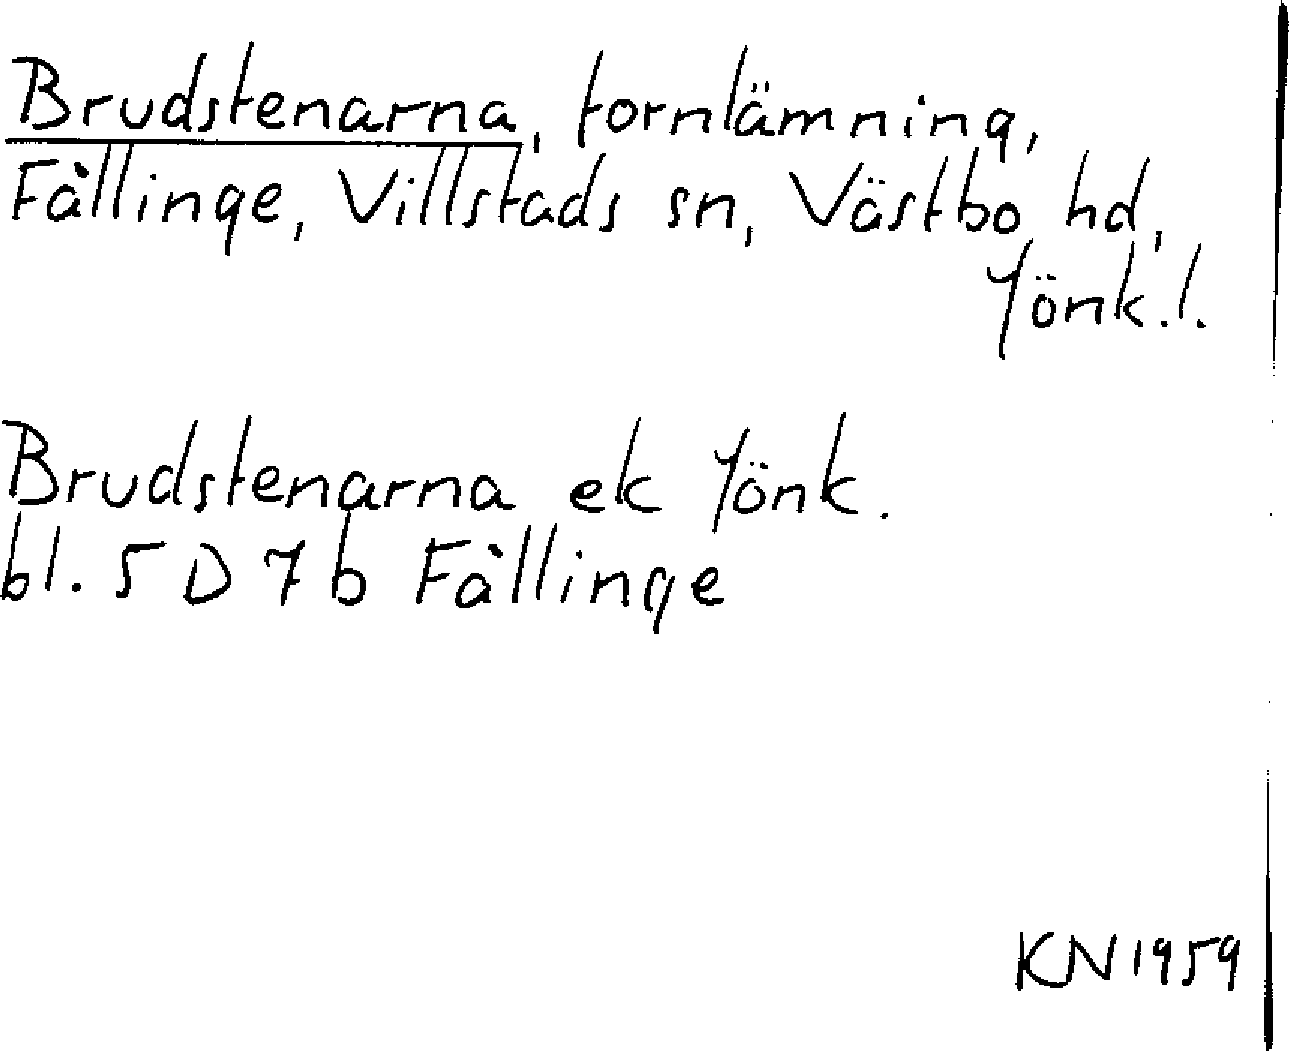 Brudstenarna, fornlämning,
Fållinge, Villstads sn, Västbo hd,
Jönk.l.
Brudstenarna ek Jönk.
bl. 5 D 7 b Fållinge
KN 1959